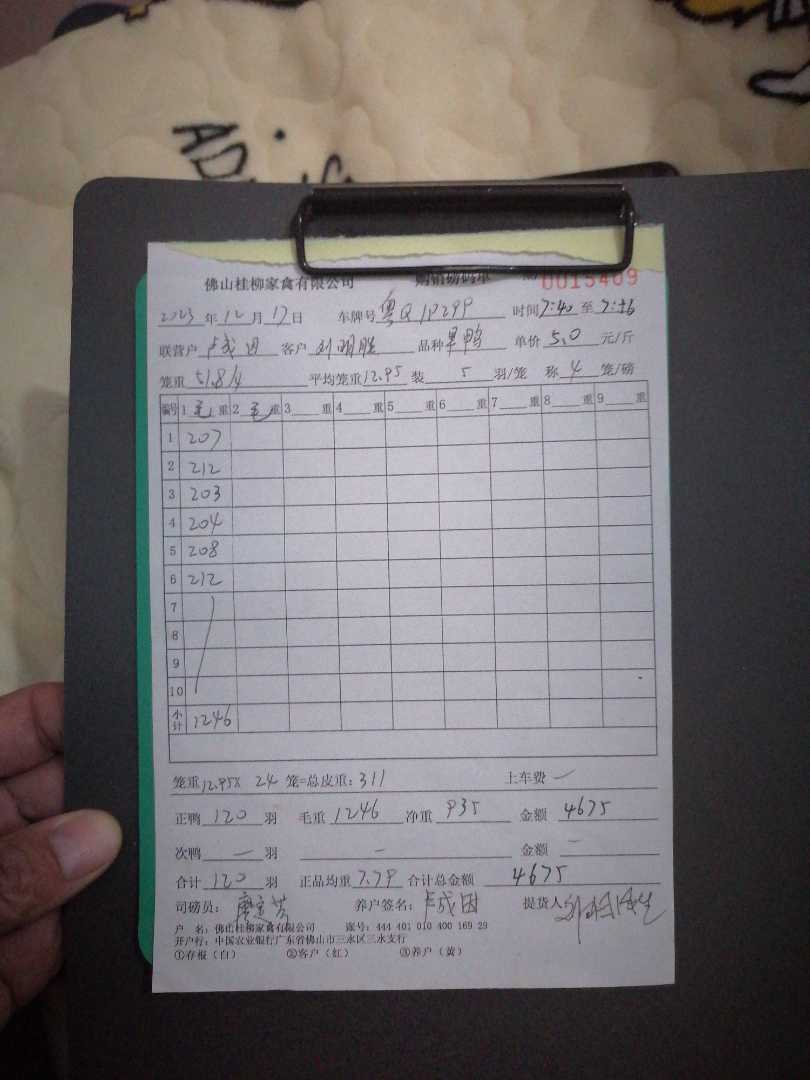 AD
佛山桂柳家禽有限公司 购销磅码单 №0015409
2023年12月17日 车牌号 粤Q1P299 时间7:40至7:56
联营户 客户 刘明胜 品种 单价 5.0 元/斤
笼重 51.8/4 平均笼重12.95 装 5 羽/笼 称 4 笼/磅
编号 1 毛 重 2 毛 重 3 重 4 重 5 重 6 重 7 重 8 重 9 重
1 207
2 212
3 203
4 204
5 208
6 212
7
8
9
10
小计 1246
笼重12.95X 24 笼=总皮重:311 上车费 —
正鸭 120 羽 毛重 1246 净重 935 金额 4675
次鸭 — 羽 — 金额 —
合计 120 羽 正品均重 7.79 合计总金额 4675
司磅员: 养户签名: 提货人
户 名:佛山桂柳家禽有限公司 账号:444 401 010 400 169 29
开户行:中国农业银行广东省佛山市三水区三水支行
①存根(白) ②客户(红) ③养户(黄)